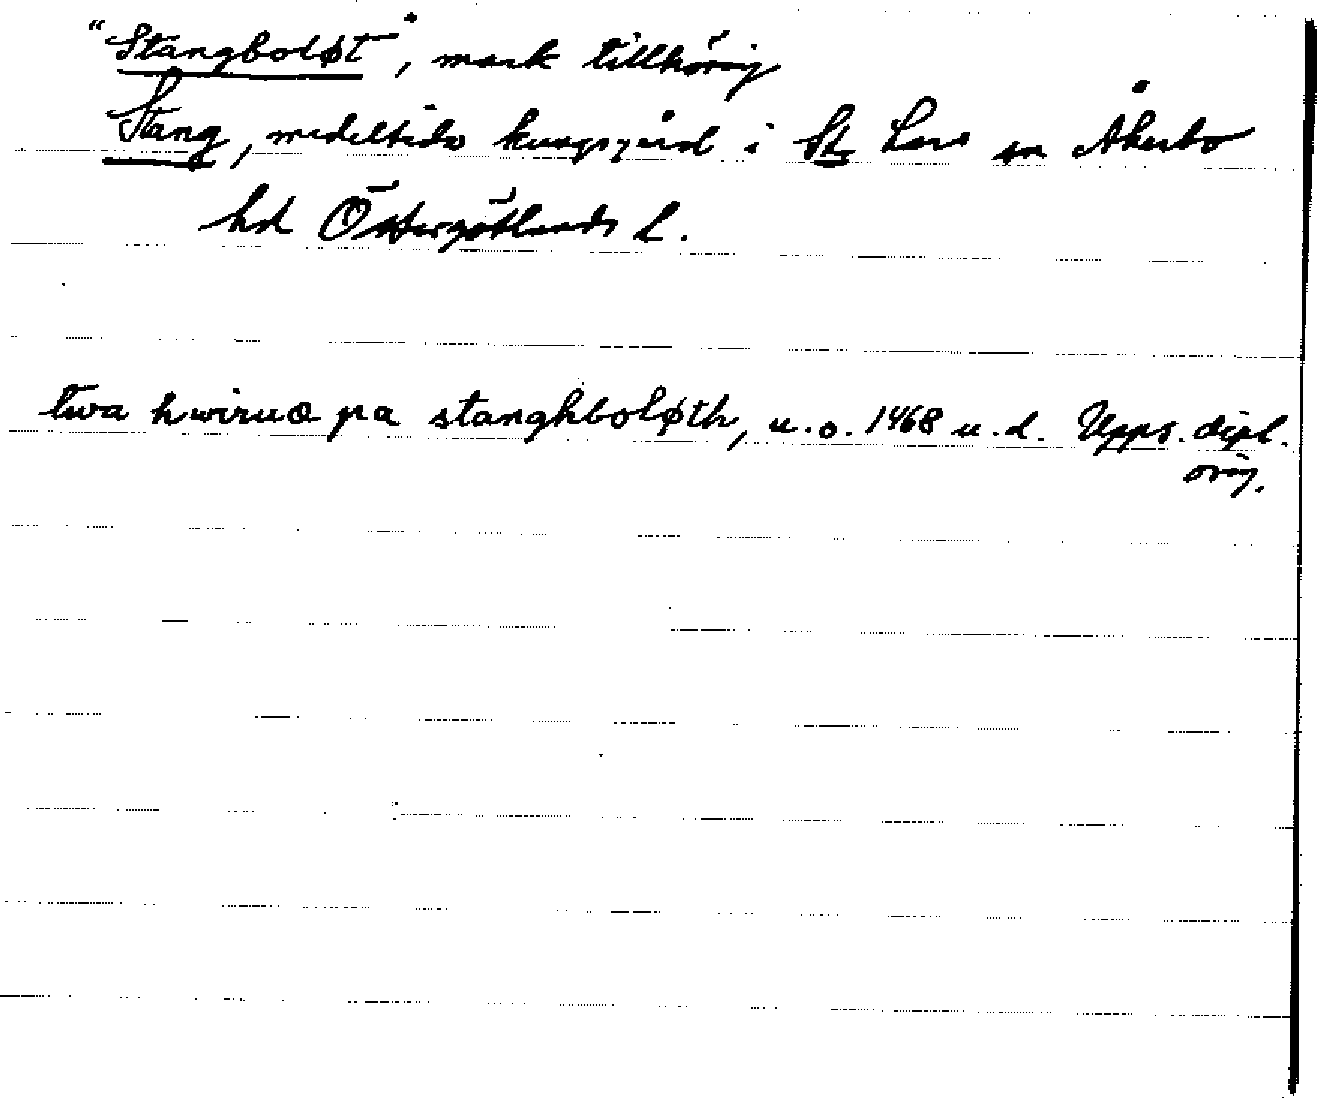 "Stangboløt", mark tillhörig
Stang, medeltida kungsgård i St Lars sn Åkerbo
hd Östergötlands l.
twa hwiruæ pa stanghboløth, u.o. 1468 u.d. Upps. dipl.
orig.